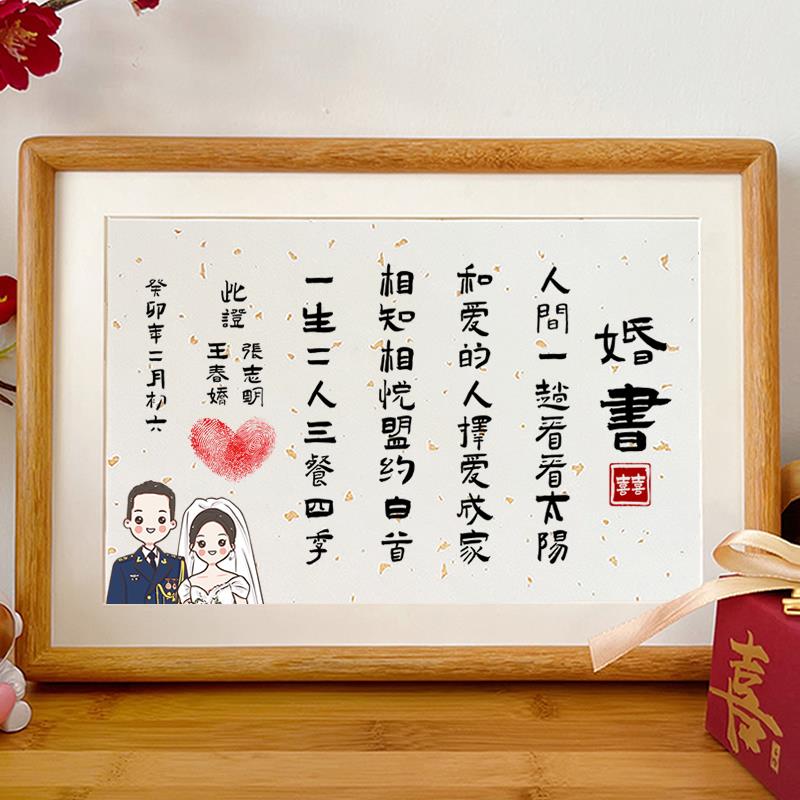 婚書
囍
人間一趟看看太陽
和爱的人擇爱成家
相知相悅盟约白首
一生二人三餐四季
此證
張志明
王春嬌
癸卯年二月初六
喜